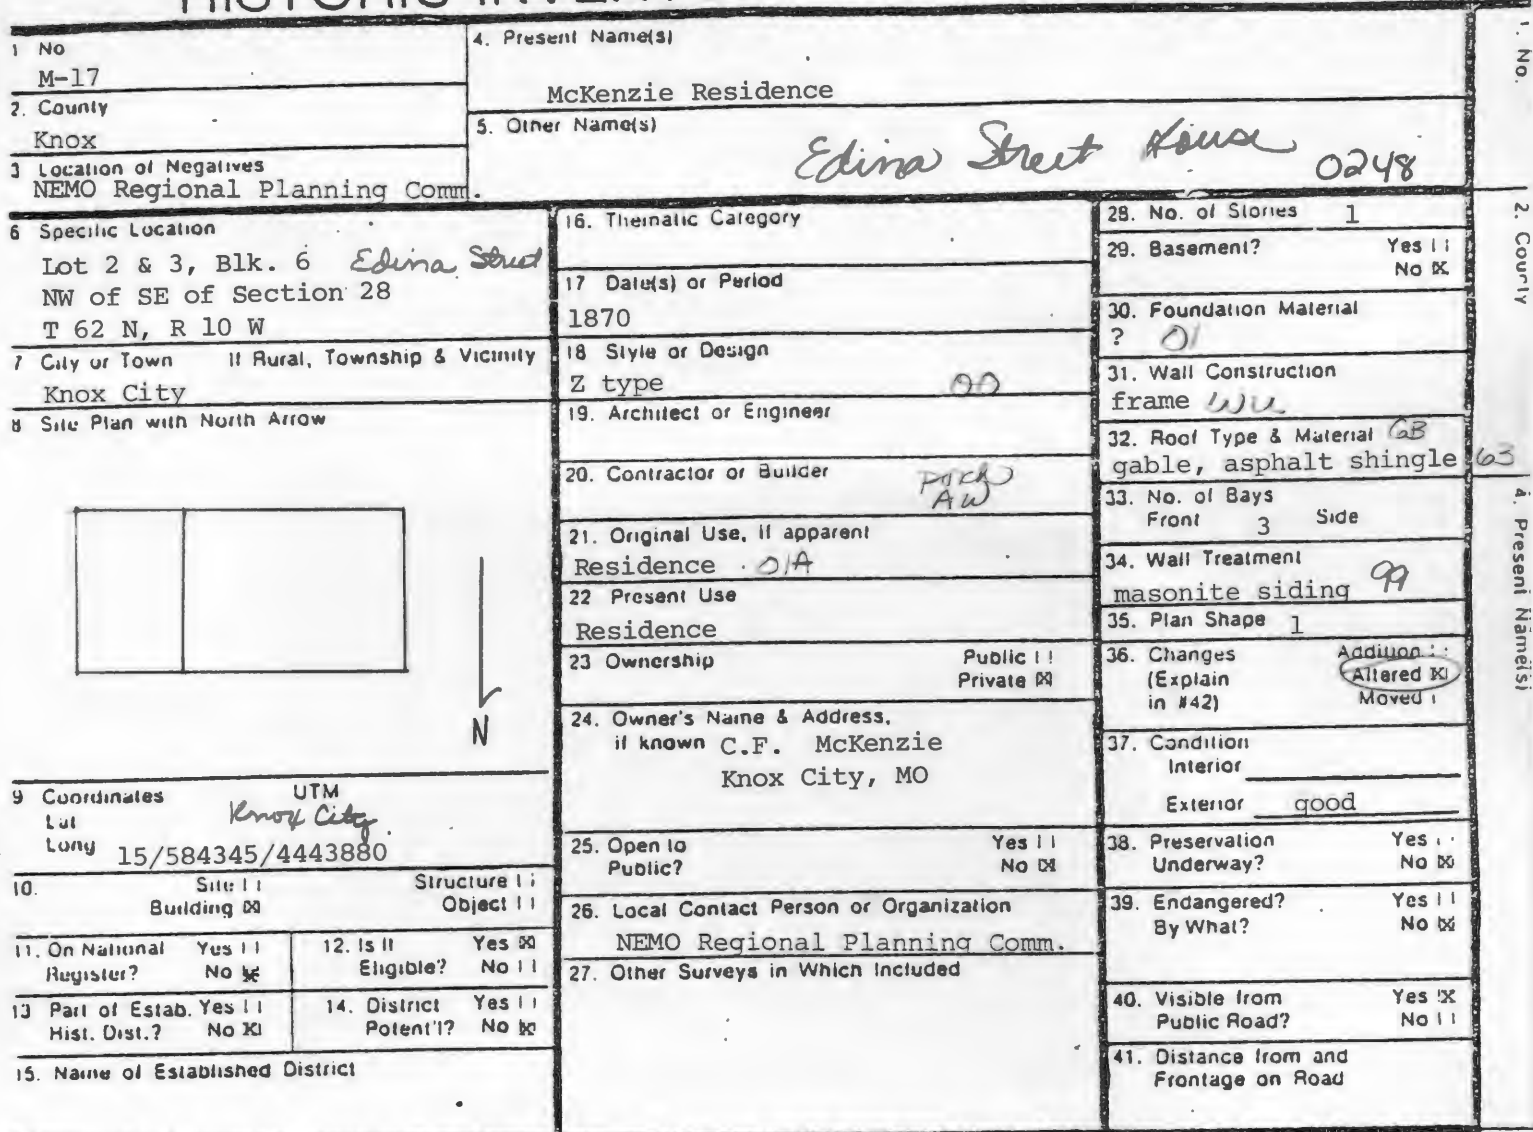 1 No
M-17
2. County
Knox
3 Location of Negatives
NEMO Regional Planning Comm.
4. Present Name(s)
McKenzie Residence
5. Other Name(s)
Edina Street House 0248
6 Specific Location
Lot 2 & 3, Blk. 6 Edina Street
NW of SE of Section 28
T 62 N, R 10 W
7 City or Town If Rural, Township & Vicinity
Knox City
8 Site Plan with North Arrow
N
9 Coordinates UTM
Lat Knox City
Long 15/584345/4443880
10. Site Structure
Building ☒ Object
11. On National Yes
Register? No ☒
12. Is It Yes ☒
Eligible? No
13 Part of Estab. Yes
Hist. Dist.? No ☒
14. District Yes
Potent'l? No ☒
15. Name of Established District
16. Thematic Category
17 Date(s) or Period
1870
18 Style or Design
Z type 00
19. Architect or Engineer
20. Contractor or Builder
porch
AW
21. Original Use, If apparent
Residence 01A
22 Present Use
Residence
23 Ownership Public
Private ☒
24. Owner's Name & Address,
if known C.F. McKenzie
Knox City, MO
25. Open to Yes
Public? No ☒
26. Local Contact Person or Organization
NEMO Regional Planning Comm.
27. Other Surveys in Which Included
28. No. of Stories 1
29. Basement? Yes
No ☒
30. Foundation Material
? 01
31. Wall Construction
frame WU
32. Roof Type & Material GB
gable, asphalt shingle 63
33. No. of Bays
Front 3 Side
34. Wall Treatment
masonite siding 99
35. Plan Shape 1
36. Changes Addition
(Explain Altered ☒
in #42) Moved
37. Condition
Interior
Exterior good
38. Preservation Yes
Underway? No ☒
39. Endangered? Yes
By What? No ☒
40. Visible from Yes ☒
Public Road? No
41. Distance from and
Frontage on Road
1. No.
2. County
4. Present Name(s)